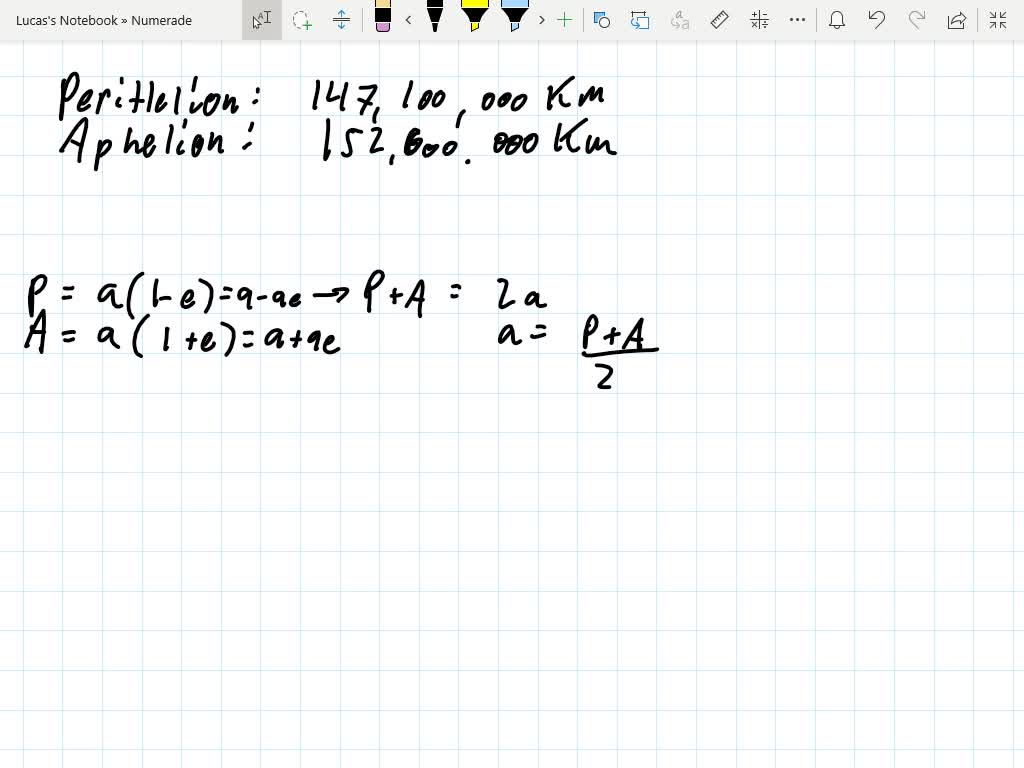 Lucas's Notebook » Numerade
Peritlelion: 147,100,000 Km
Aphelion: 152,600.000 Km
P = a(1-e)=a-ae→P+A = 2a
A = a(1+e)=a+ae a= P+A
2